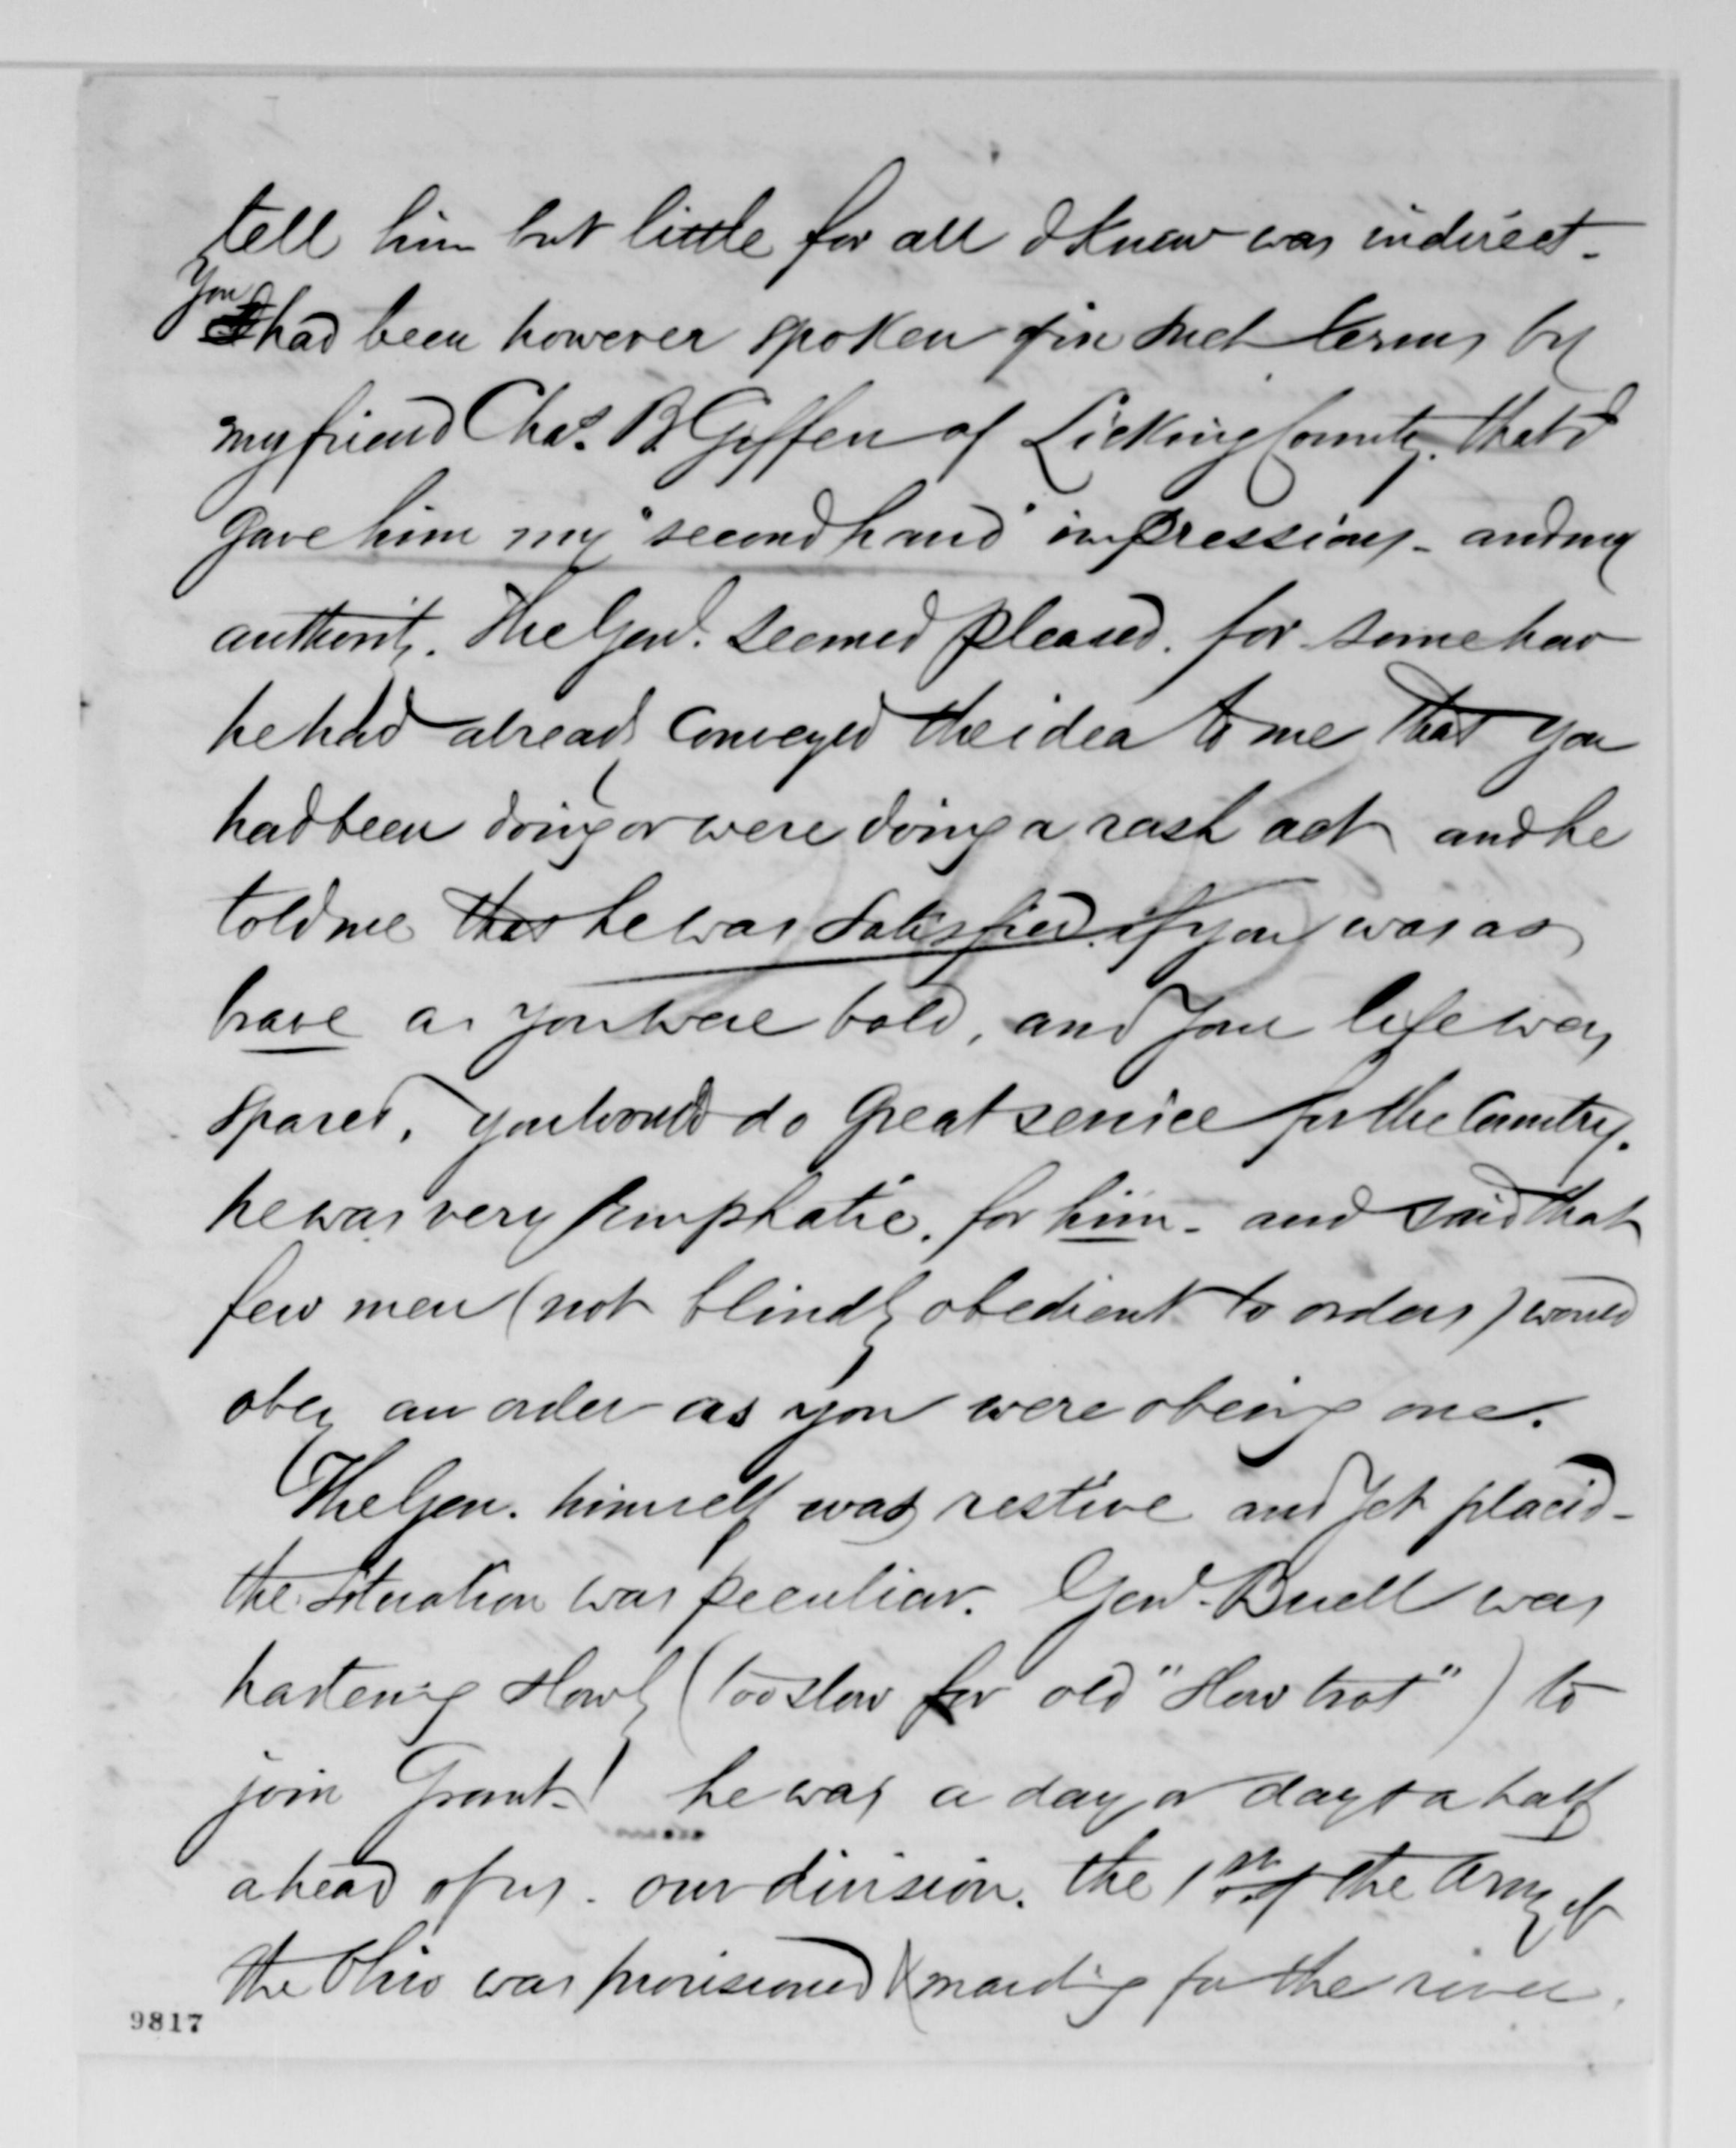 tell him but little for all I knew was indirect -
You had been however spoken of in such terms by
my friend Chas. B. Giffen of Licking County. that I
gave him my "second hand" impressions - and my
authority. The Genl. seemed pleased. for somehow
he had already conveyed the idea to me that you
had been doing or were doing a rash act and he
told me that he was satisfied. if you was as
brave as you were bold, and your life was
spared, you would do great service for the Country.
he was very emphatic. for him - and said that
few men (not blindly obedient to orders) would
obey an order as you were obeing one.
The Gen. himself was restive and yet placid -
the situation was peculiar. Genl. Buell was
hastening slowly (too slow for old "slow trot") to
join Grant! he was a day or day & a half
ahead of us. our division. the 1st of the Army of
the Ohio was provisioned & marching for the river.
9817